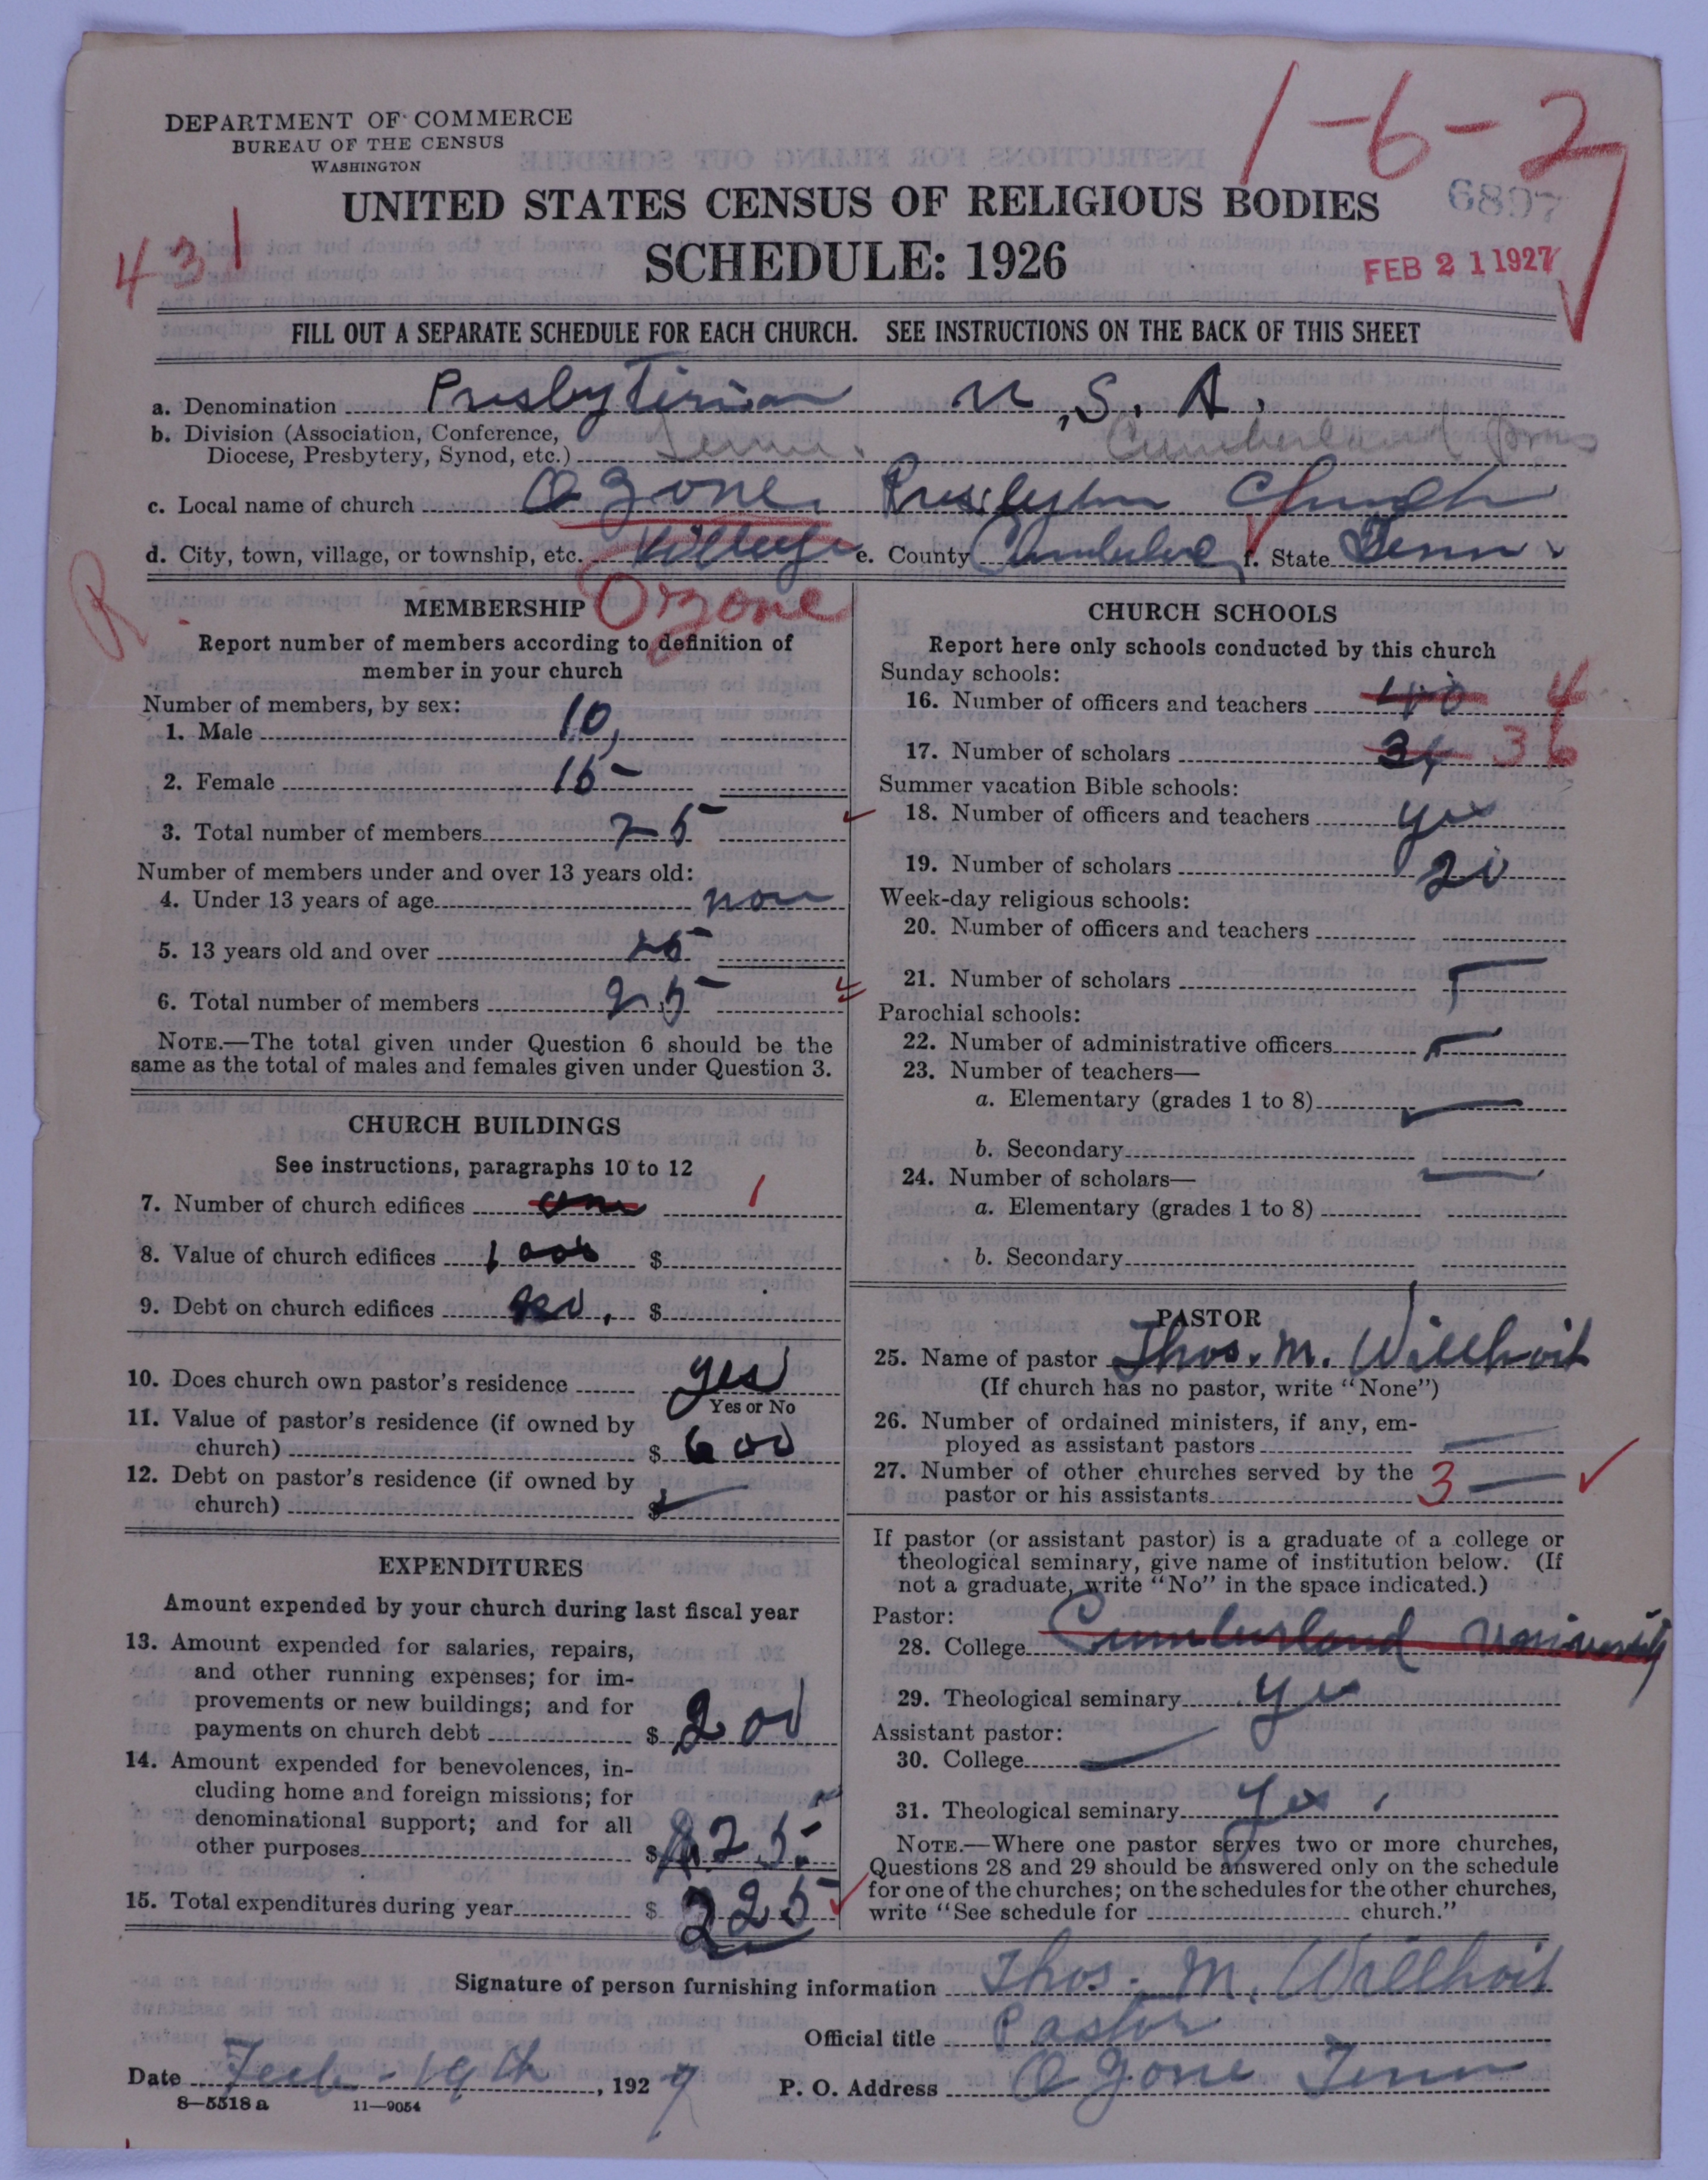 DEPARTMENT OF COMMERCE
BUREAU OF THE CENSUS
WASHINGTON
1-6-2
UNITED STATES CENSUS OF RELIGIOUS BODIES
6897
431
SCHEDULE: 1926
FEB 21 1927
FILL OUT A SEPARATE SCHEDULE FOR EACH CHURCH. SEE INSTRUCTIONS ON THE BACK OF THIS SHEET
a. Denomination Presbyterian U.S.A.
b. Division (Association, Conference,
Diocese, Presbytery, Synod, etc.) Tenn. Cumberland
c. Local name of church Ozone Presbyterian Church
d. City, town, village, or township, etc. Village e. County Cumberland f. State Tenn
R
MEMBERSHIP Ozone
Report number of members according to definition of
member in your church
Number of members, by sex:
1. Male 10,
2. Female 15
3. Total number of members 25
Number of members under and over 13 years old:
4. Under 13 years of age non
5. 13 years old and over 25
6. Total number of members 25
NOTE.—The total given under Question 6 should be the
same as the total of males and females given under Question 3.
CHURCH BUILDINGS
See instructions, paragraphs 10 to 12
7. Number of church edifices one 1
8. Value of church edifices 1000 $
9. Debt on church edifices $
10. Does church own pastor's residence yes
Yes or No
11. Value of pastor's residence (if owned by
church) $ 600
12. Debt on pastor's residence (if owned by
church) $
EXPENDITURES
Amount expended by your church during last fiscal year
13. Amount expended for salaries, repairs,
and other running expenses; for im-
provements or new buildings; and for
payments on church debt $ 200
14. Amount expended for benevolences, in-
cluding home and foreign missions; for
denominational support; and for all
other purposes $ 25
15. Total expenditures during year $ 225
CHURCH SCHOOLS
Report here only schools conducted by this church
Sunday schools:
16. Number of officers and teachers 4
17. Number of scholars 34 36
Summer vacation Bible schools:
18. Number of officers and teachers yes
19. Number of scholars 20
Week-day religious schools:
20. Number of officers and teachers
21. Number of scholars
Parochial schools:
22. Number of administrative officers
23. Number of teachers—
a. Elementary (grades 1 to 8)
b. Secondary
24. Number of scholars—
a. Elementary (grades 1 to 8)
b. Secondary
PASTOR
25. Name of pastor Thos. M. Willhoit
(If church has no pastor, write "None")
26. Number of ordained ministers, if any, em-
ployed as assistant pastors
27. Number of other churches served by the
pastor or his assistants 3
If pastor (or assistant pastor) is a graduate of a college or
theological seminary, give name of institution below. (If
not a graduate, write "No" in the space indicated.)
Pastor:
28. College Cumberland University
29. Theological seminary yes
Assistant pastor:
30. College
31. Theological seminary yes.
NOTE.—Where one pastor serves two or more churches,
Questions 28 and 29 should be answered only on the schedule
for one of the churches; on the schedules for the other churches,
write "See schedule for church."
Signature of person furnishing information Thos. M. Willhoit
Official title Pastor
Date Feb - 19th, 1927 P. O. Address Ozone Tenn
8—5518a 11—9054